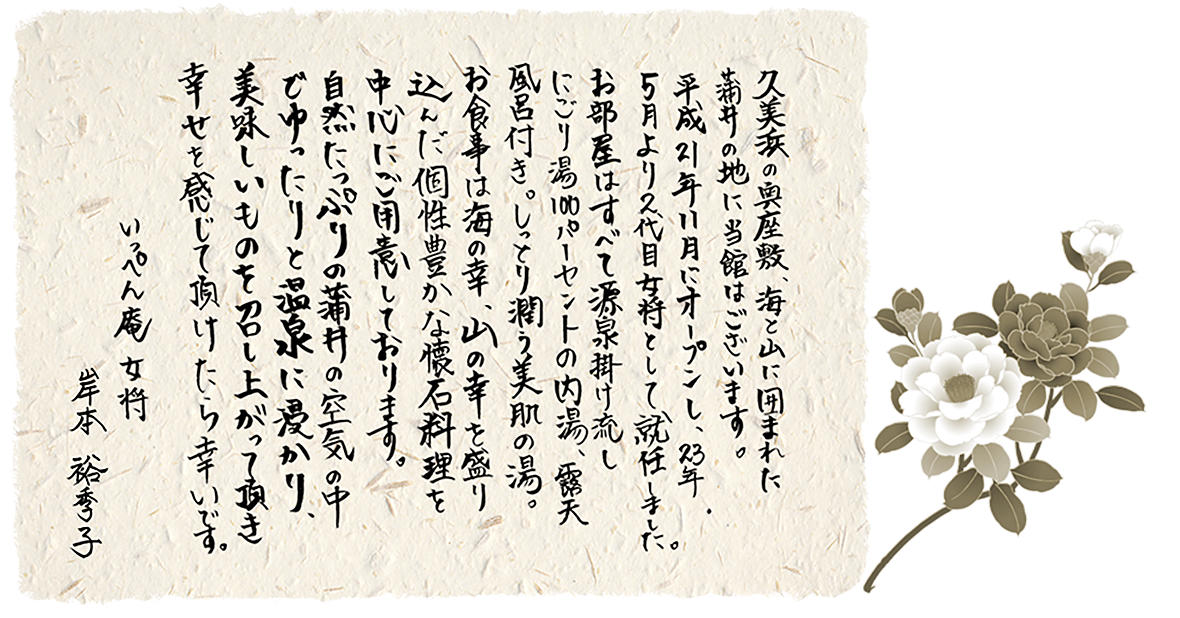 久美浜の奥座敷、海と山に囲まれた
蒲井の地に当館はございます。
平成21年11月にオープンし、23年、
5月より2代目女将として就任しました。
お部屋はすべて源泉掛け流し
にごり湯100パーセントの内湯、露天
風呂付き。しっとり潤う美肌の湯。
お食事は海の幸、山の幸を盛り
込んだ個性豊かな懐石料理を
中心にご用意しております。
自然たっぷりの蒲井の空気の中
でゆったりと温泉に浸かり、
美味しいものを召し上がって頂き
幸せを感じて頂けたら幸いです。
いっぺん庵 女将
岸本 裕秀子